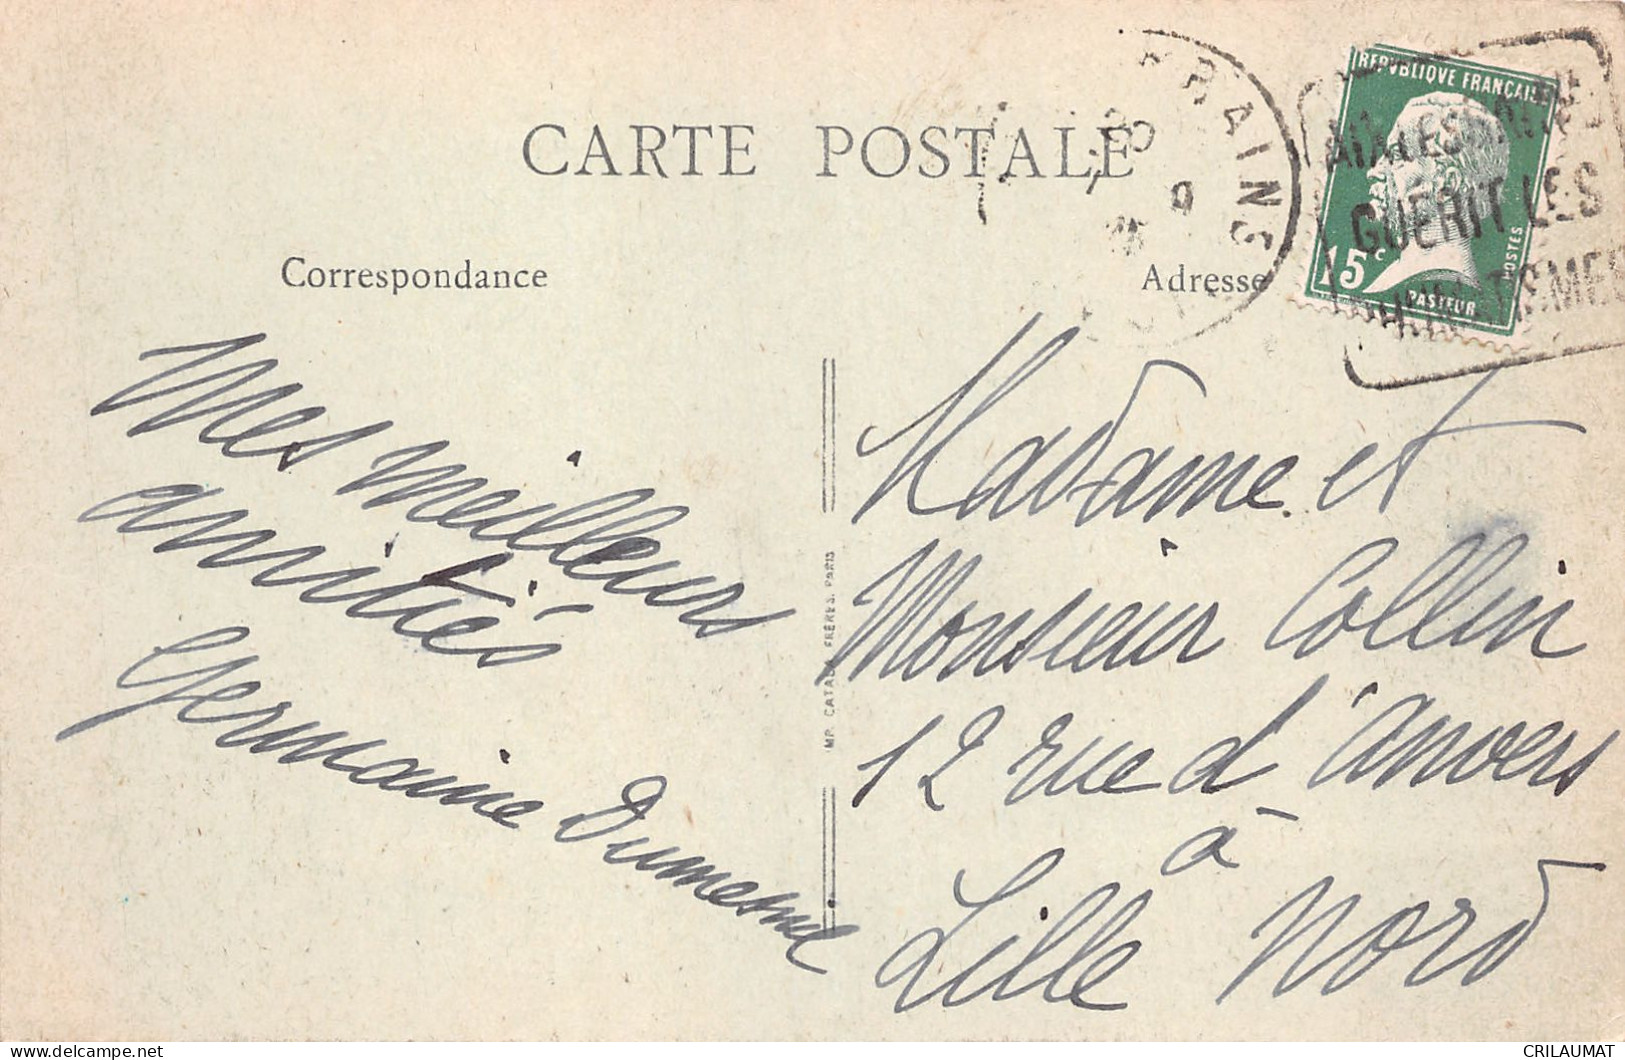 CARTE POSTALE
Correspondance
Adresse
REPUBLIQUE FRANÇAISE
15c
POSTES
PASTEUR
AIX LES BAINS
GUERIT LES
Mes meilleurs
amitiés
Germaine Dumesnil
IMP. CATALA FRÈRES, PARIS
Madame et
Monsieur Collin
12 rue d'Anvers
à
Lille Nord
delcampe.net
CRILAUMAT